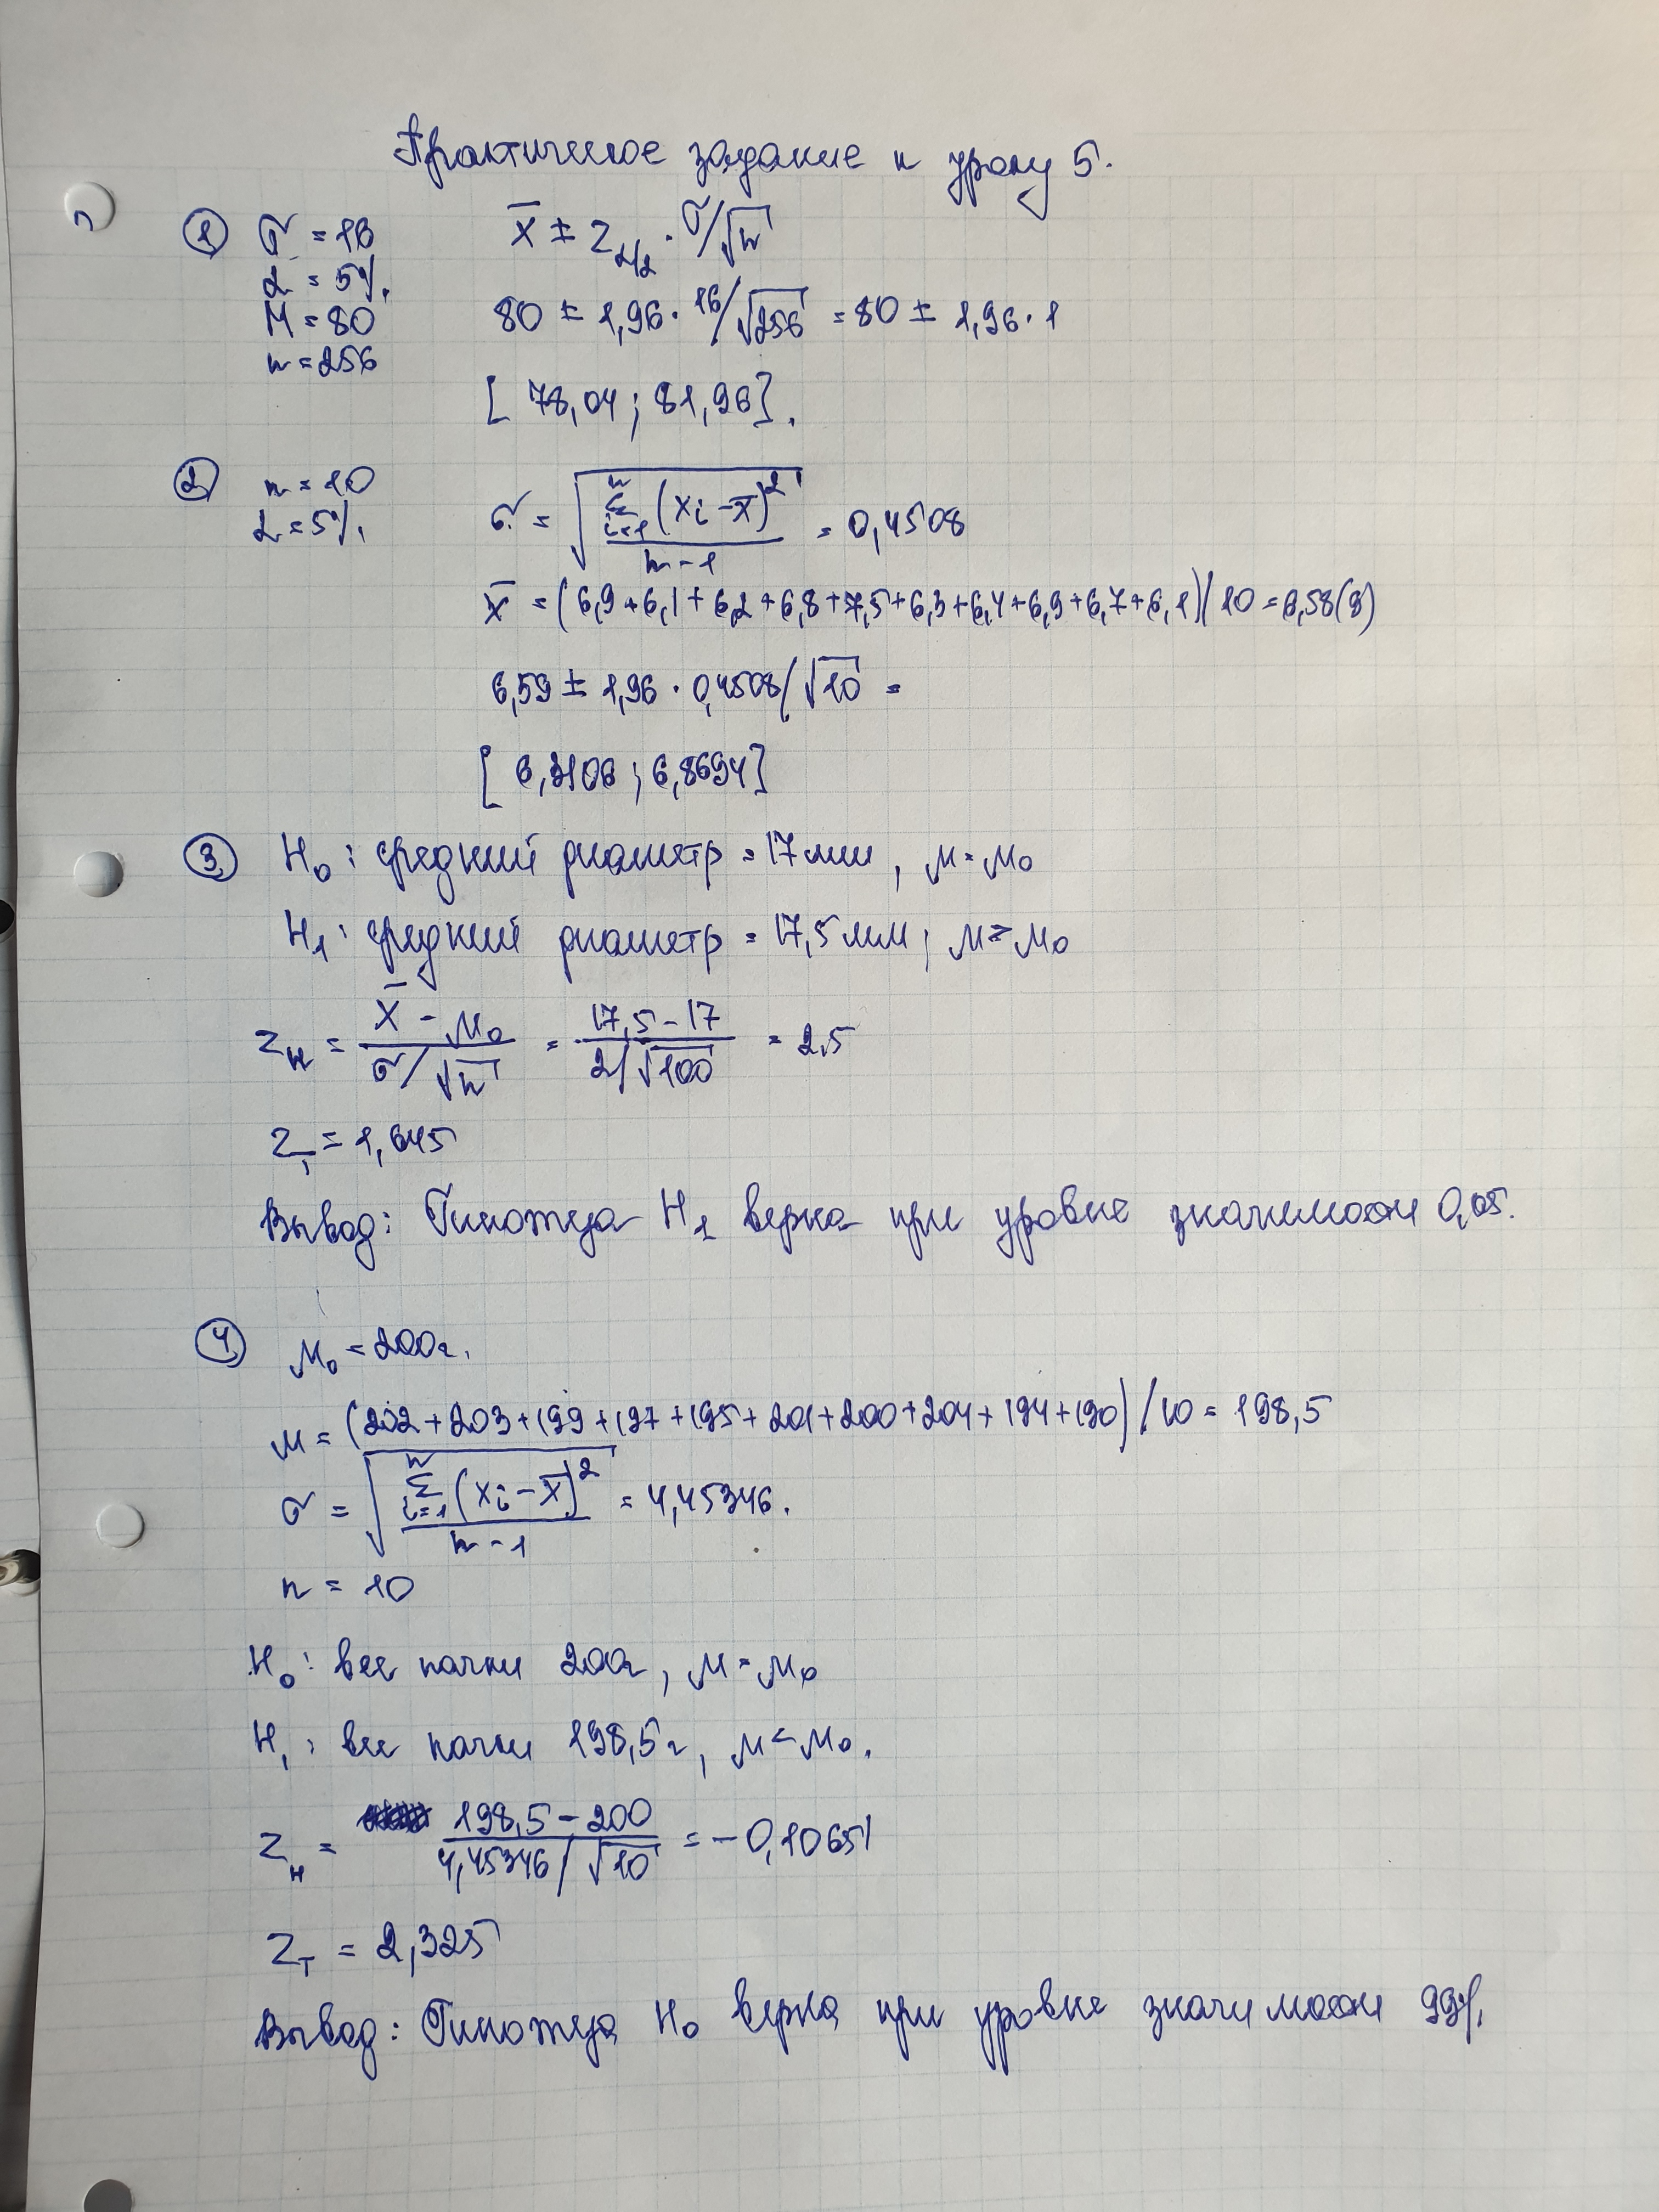 Практическое задание к уроку 5.
① σ = 16
α = 5%.
M = 80
n = 256
x̄ ± z_{α/2} · σ/√n
80 ± 1,96 · 16/√256 = 80 ± 1,96 · 1
[78,04; 81,96].
② n = 10
α = 5%.
σ = √(∑_{i=1}^{n} (xi - x̄)² / (n-1)) = 0,4508
x̄ = (6,9+6,1+6,2+6,8+7,5+6,3+6,4+6,9+6,7+6,1)/10 = 6,58(9)
6,59 ± 1,96 · 0,4508/√10 =
[6,3106; 6,8694]
③ H₀: средний диаметр = 17мм, μ = μ₀
H₁: средний диаметр = 17,5мм; μ > μ₀
Zн = (x̄ - μ₀)/(σ/√n) = (17,5-17)/(2/√100) = 2,5
Zт = 1,645
Вывод: Гипотеза H₁ верна при уровне значимости 0,05.
④ μ₀ = 200г.
μ = (202+203+199+197+195+201+200+204+194+190)/10 = 198,5
σ = √(∑_{i=1}^{n} (xi - x̄)² / (n-1)) = 4,45346.
n = 10
H₀: все пачки 200г, μ = μ₀
H₁: все пачки 198,5г, μ < μ₀.
Zн = (198,5-200)/(4,45346/√10) = -0,10651
Zт = 2,325
Вывод: Гипотеза H₀ верна при уровне значимости 99%.